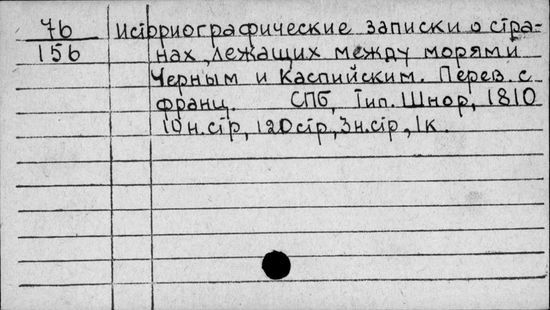 76 Истрриографические записки о стра-
156 нах, лежащих между морями
Черным и Каспийским. Перев. с
франц. СПб, Тип. Шнор, 1810
10 н.стр, 120 стр, 3 н.стр, 1к.